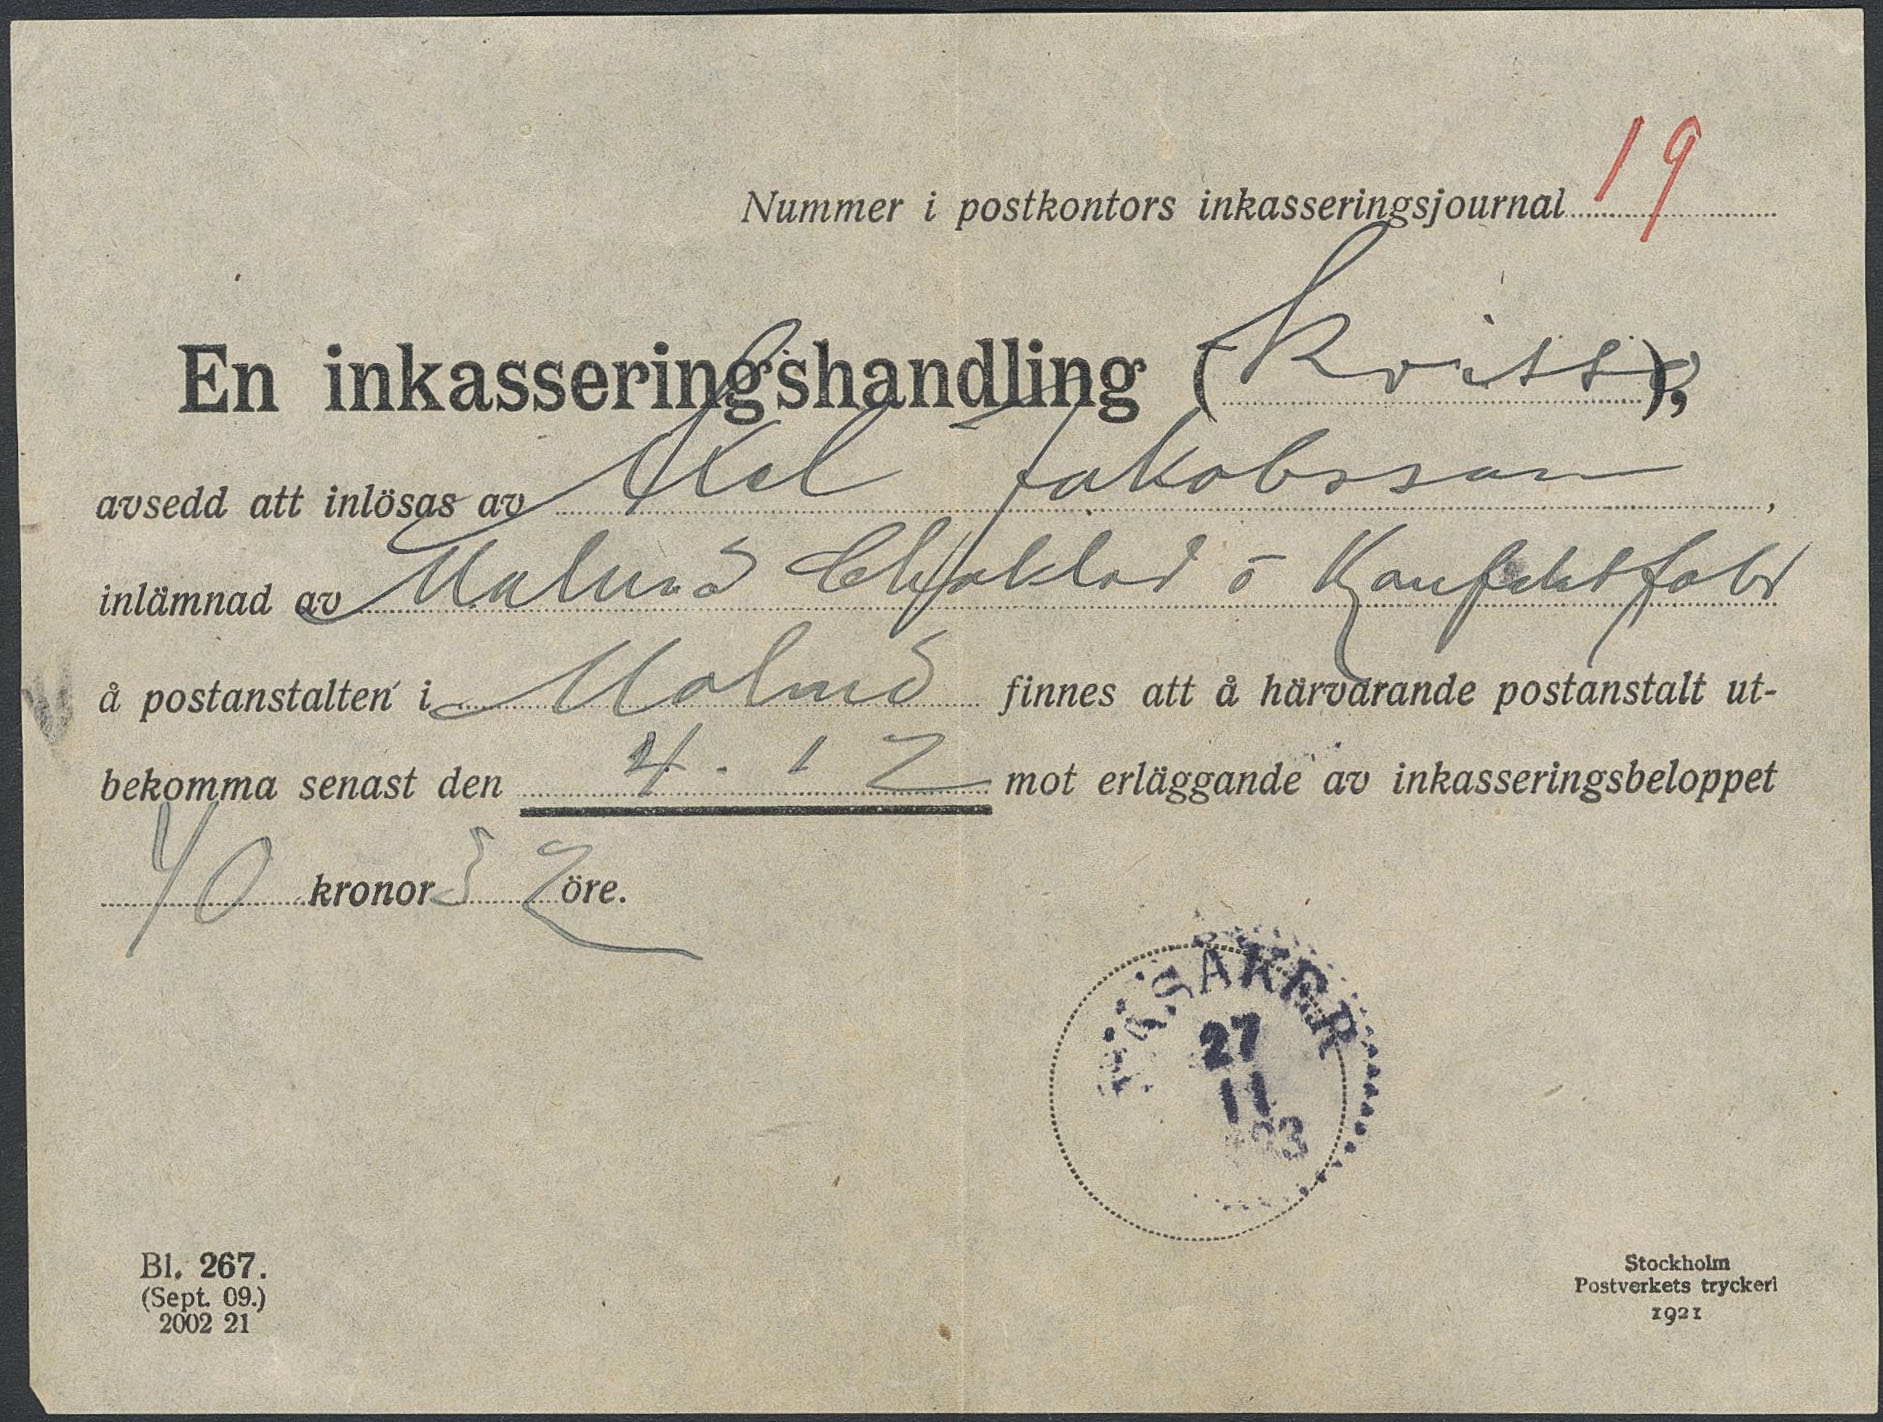 Nummer i postkontors inkasseringsjournal 19
En inkasseringshandling (kvitto),
avsedd att inlösas av Axel Jakobsson,
inlämnad av Malmö Choklad o Konfektfabr
å postanstalten i Malmö finnes att å härvarande postanstalt ut-
bekomma senast den 4.12 mot erläggande av inkasseringsbeloppet
40 kronor 52 öre.
ÅSÅKER
27
11
Bl. 267.
(Sept. 09.)
2002 21
Stockholm
Postverkets tryckeri
1921